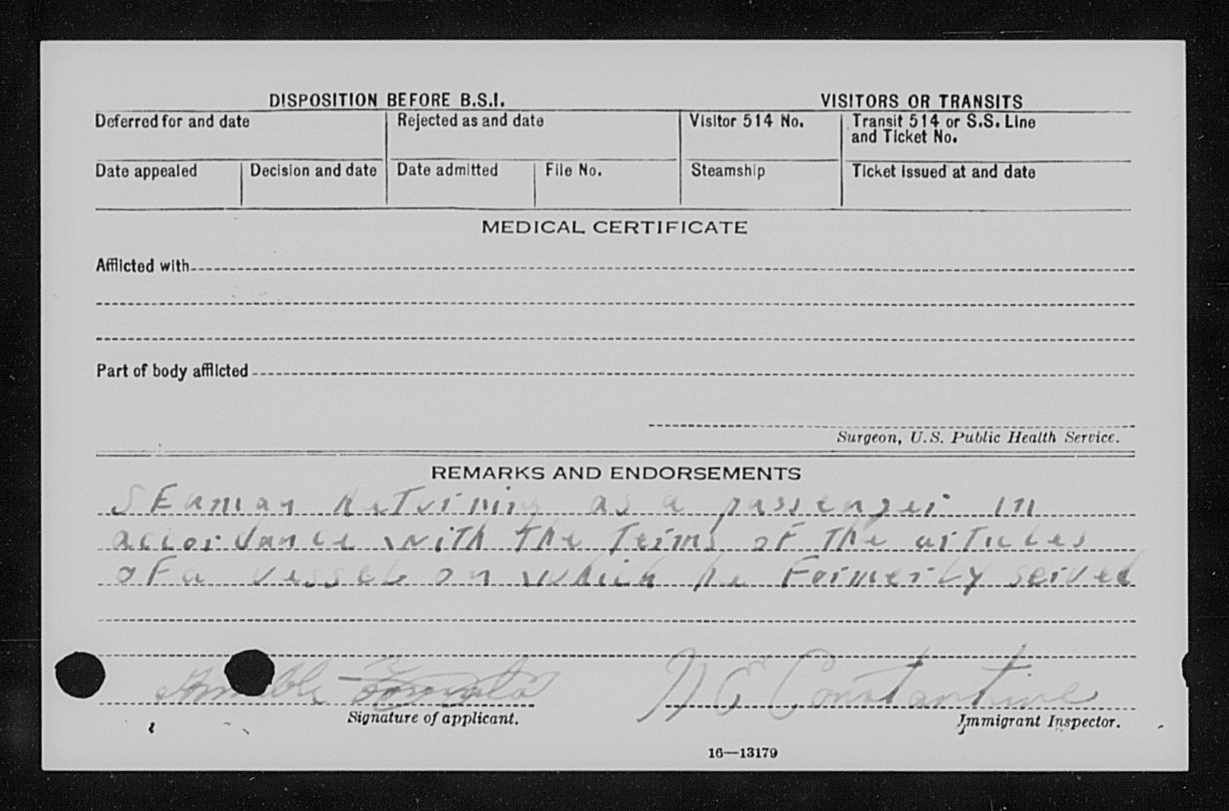 DISPOSITION BEFORE B.S.I.
VISITORS OR TRANSITS
Deferred for and date
Rejected as and date
Visitor 514 No.
Transit 514 or S.S. Line
and Ticket No.
Date appealed
Decision and date
Date admitted
File No.
Steamship
Ticket issued at and date
MEDICAL CERTIFICATE
Afflicted with
Part of body afflicted
Surgeon, U.S. Public Health Service.
REMARKS AND ENDORSEMENTS
SEaman ReTurning as a passenger in
accordance with the Terms of The articles
of a vessel on which he Formerly served
N E Constantine
Signature of applicant.
Immigrant Inspector.
16—13179